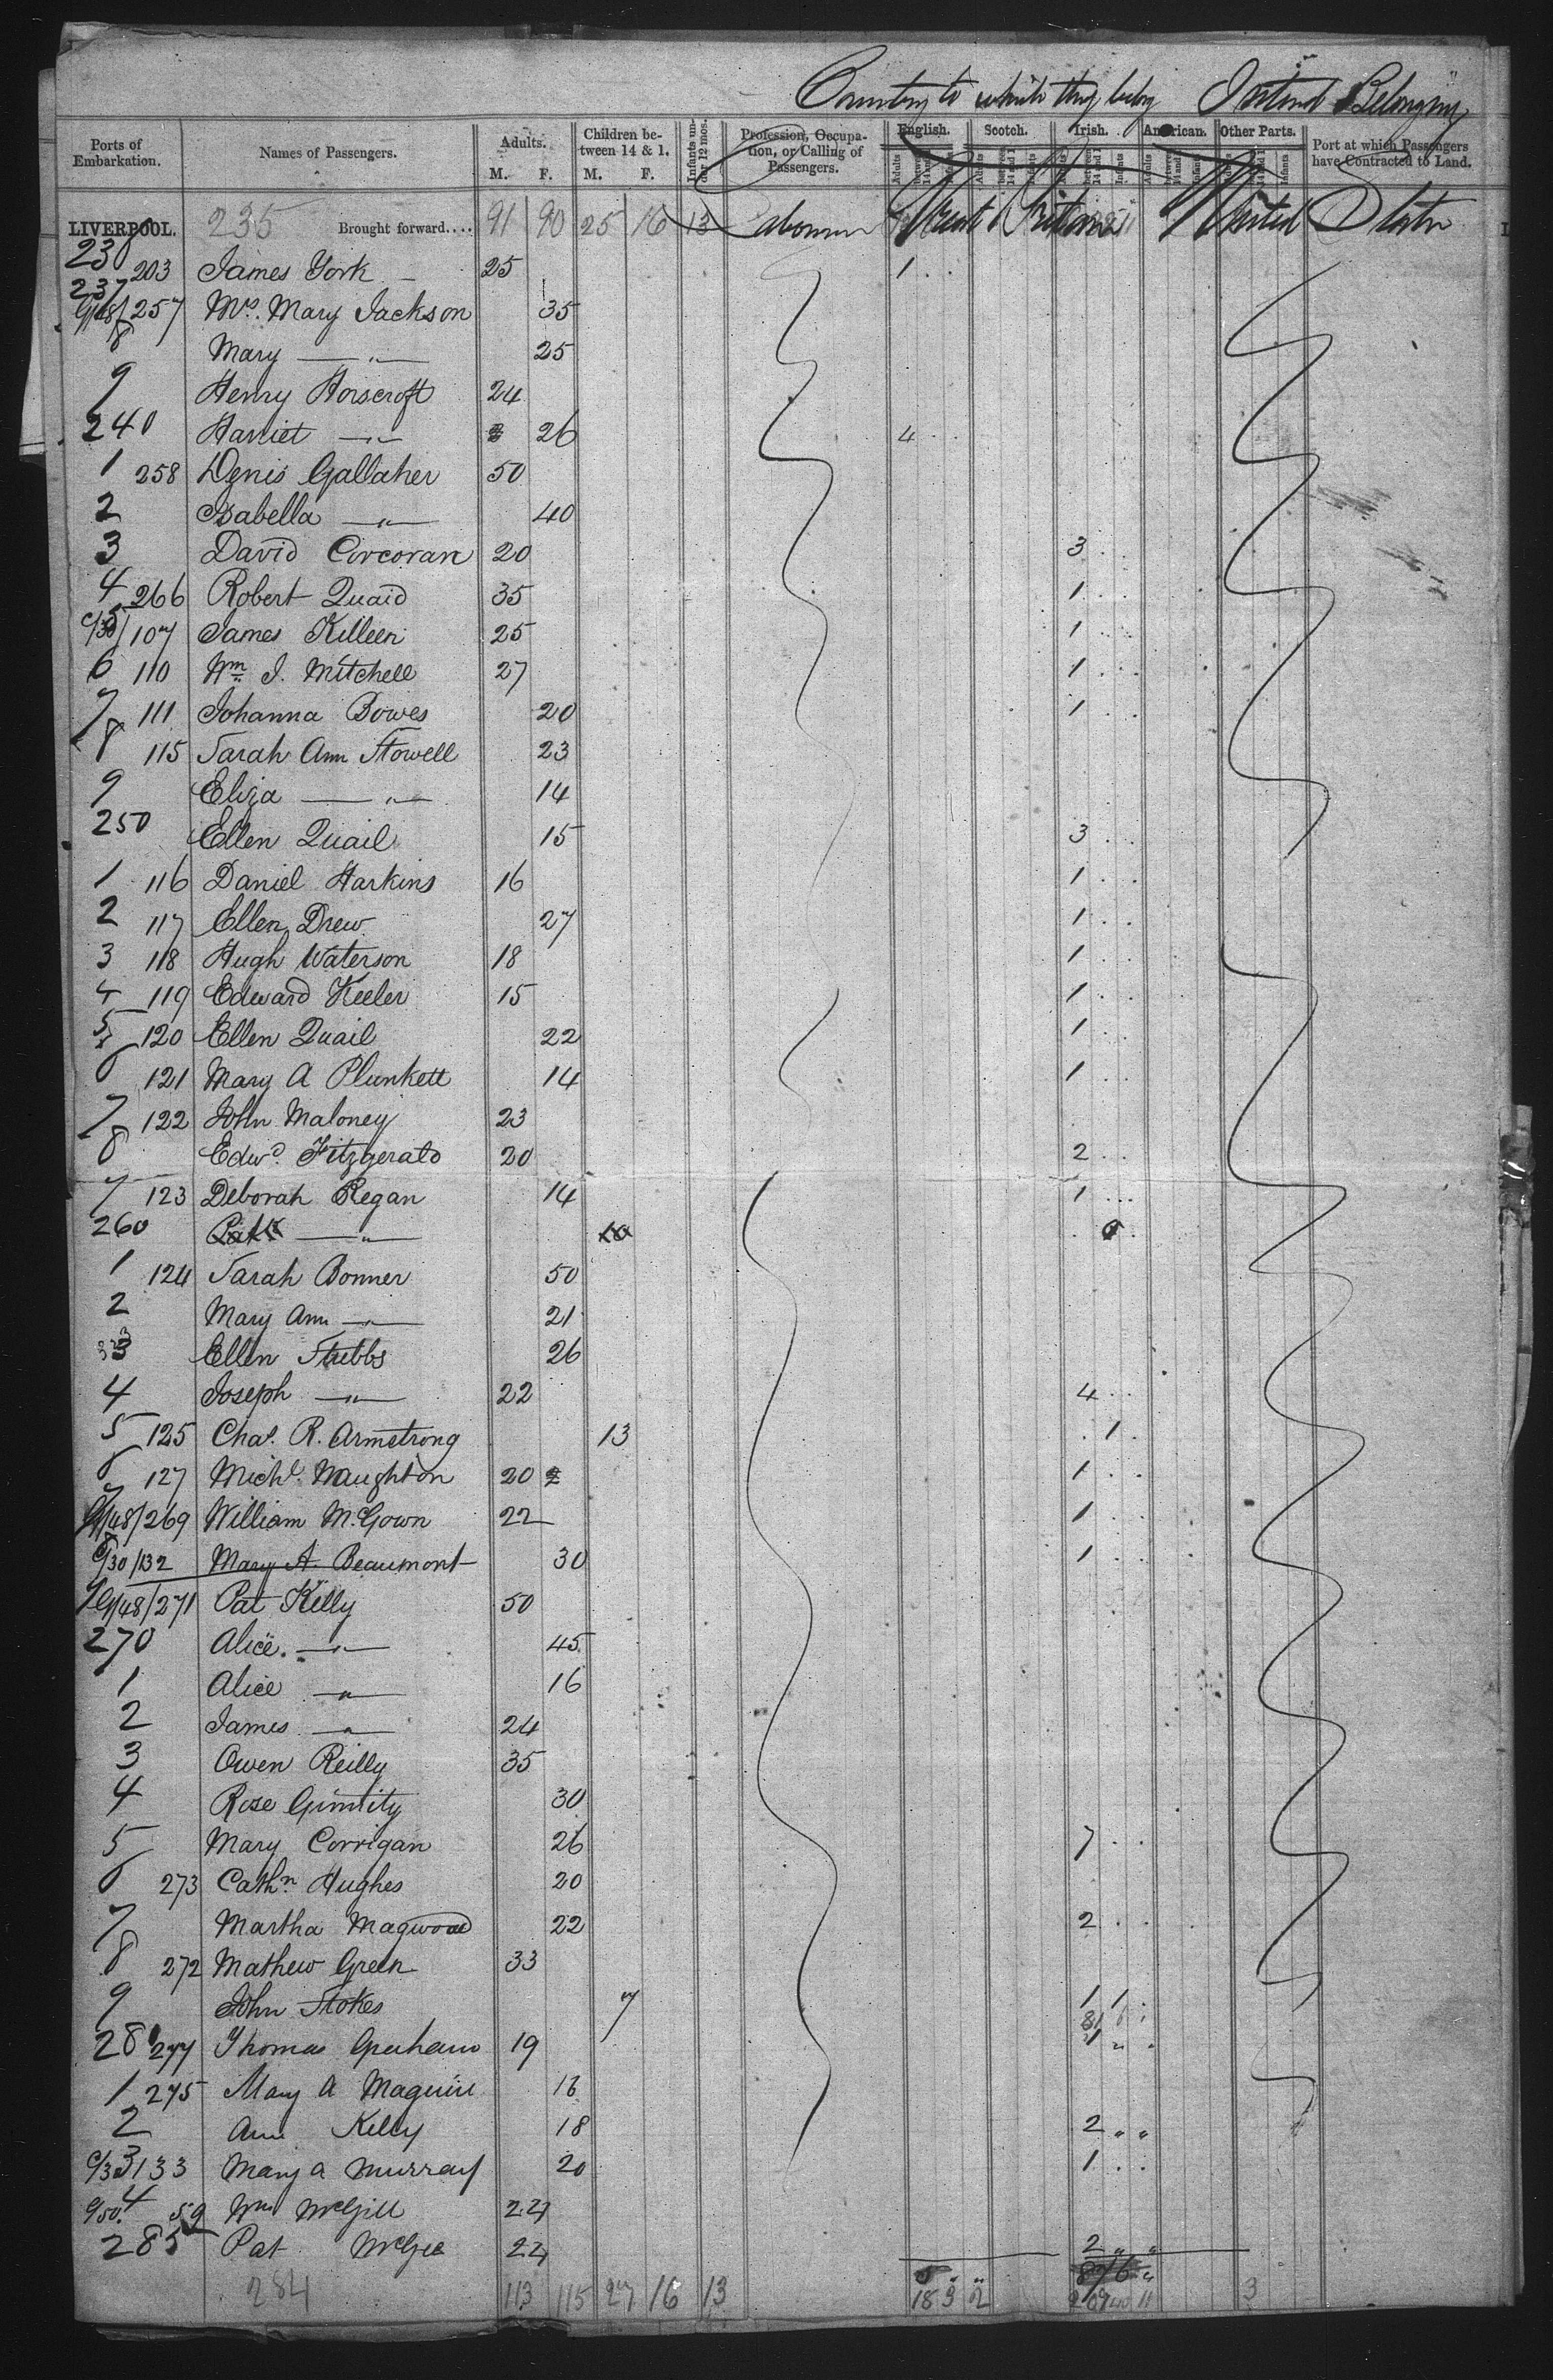 Country to which they belong Intend Belonging
Ports of Embarkation. Names of Passengers. Adults. M. F. Children between 14 & 1. M. F. Infants under 12 mos. Profession, Occupation, or Calling of Passengers. English. Scotch. Irish. American. Other Parts. Port at which Passengers have Contracted to Land.
LIVERPOOL. 235 Brought forward.... 91 90 25 16 13 Labourer Great Britain United States
236 203 James York 25 1
237 C/48/257 Mrs. Mary Jackson 35
8 Mary —"— 25
9 Henry Horscroft 24
240 Harriet —"— 26 4
1 258 Denis Gallaher 50
2 Isabella —"— 40
3 David Corcoran 20 3
4 266 Robert Quaid 35 1
5 C/30/107 James Killeen 25 1
6 110 Wm J. Mitchell 27 1
7 111 Johanna Bowes 20 1
8 115 Sarah Ann Stowell 23
9 Eliza —"— 14
250 Ellen Quail 15 3
1 116 Daniel Harkins 16 1
2 117 Ellen Drew 27 1
3 118 Hugh Waterson 18 1
4 119 Edward Keeler 15 1
5 120 Ellen Quail 22 1
6 121 Mary A Plunkett 14 1
7 122 John Maloney 23
8 Edwd. Fitzgerald 20 2
9 123 Deborah Regan 14 1
260 Patk —"— 10
1 124 Sarah Bonner 50
2 Mary Ann —"— 21
3 Ellen Stubbs 26
4 Joseph —"— 22 4
5 125 Chas. R. Armstrong 13 1
6 127 Michl. Naughton 20 1
7 C/48/269 William McGown 22 1
8 C/30/132 Mary A. Beaumont 30 1
9 C/48/271 Pat Kelly 50
270 Alice —"— 45
1 Alice —"— 16
2 James —"— 24
3 Owen Reilly 35
4 Rose Gimity 30
5 Mary Corrigan 26 7
6 273 Cathn. Hughes 20
7 Martha Magwood 22 2
8 272 Mathew Green 33
9 John Stokes 7 1 1
280 277 Thomas 19 1 "
1 275 Mary A Maguire 16
2 Ann Kelly 18 2 " "
3 C/30/133 Mary A Murray 20 1
4 C/50 59 Wm McGill 24
285 Pat McGee 24 2 " "
284 113 115 27 16 13 18 3 2 209 40 11 3